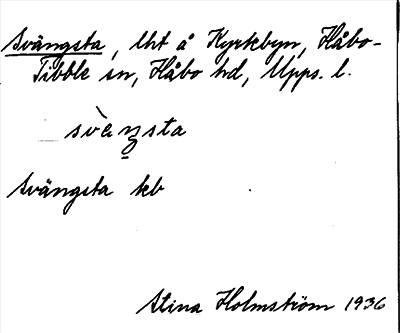 Svängsta, lht å Kyrkbyn, Håbo-
Tibble sn, Håbo hd, Upps. l.
Svängsta kb
Stina Holmström 1936